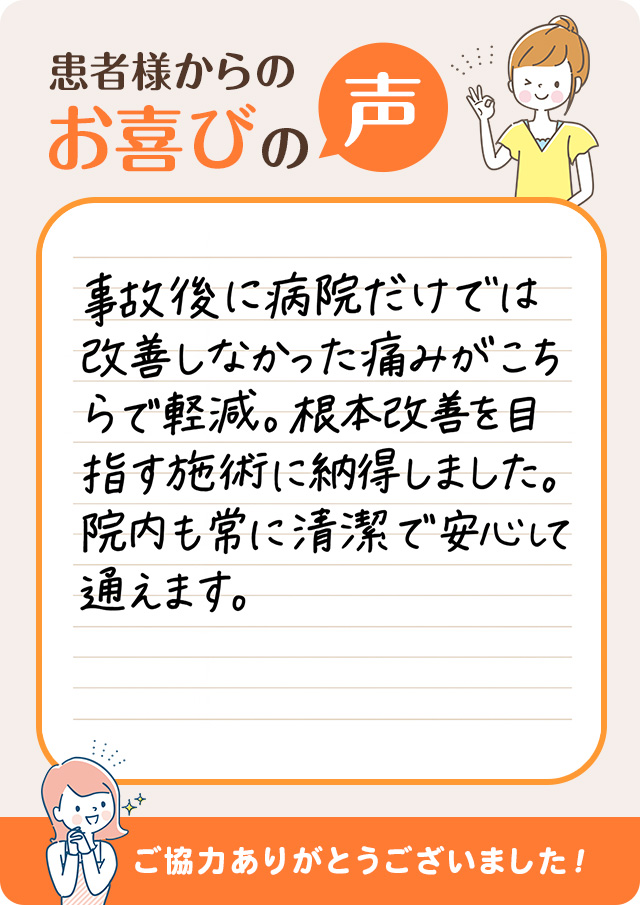 患者様からの
お喜びの声
事故後に病院だけでは
改善しなかった痛みがこち
らで軽減。根本改善を目
指す施術に納得しました。
院内も常に清潔で安心して
通えます。
ご協力ありがとうございました!